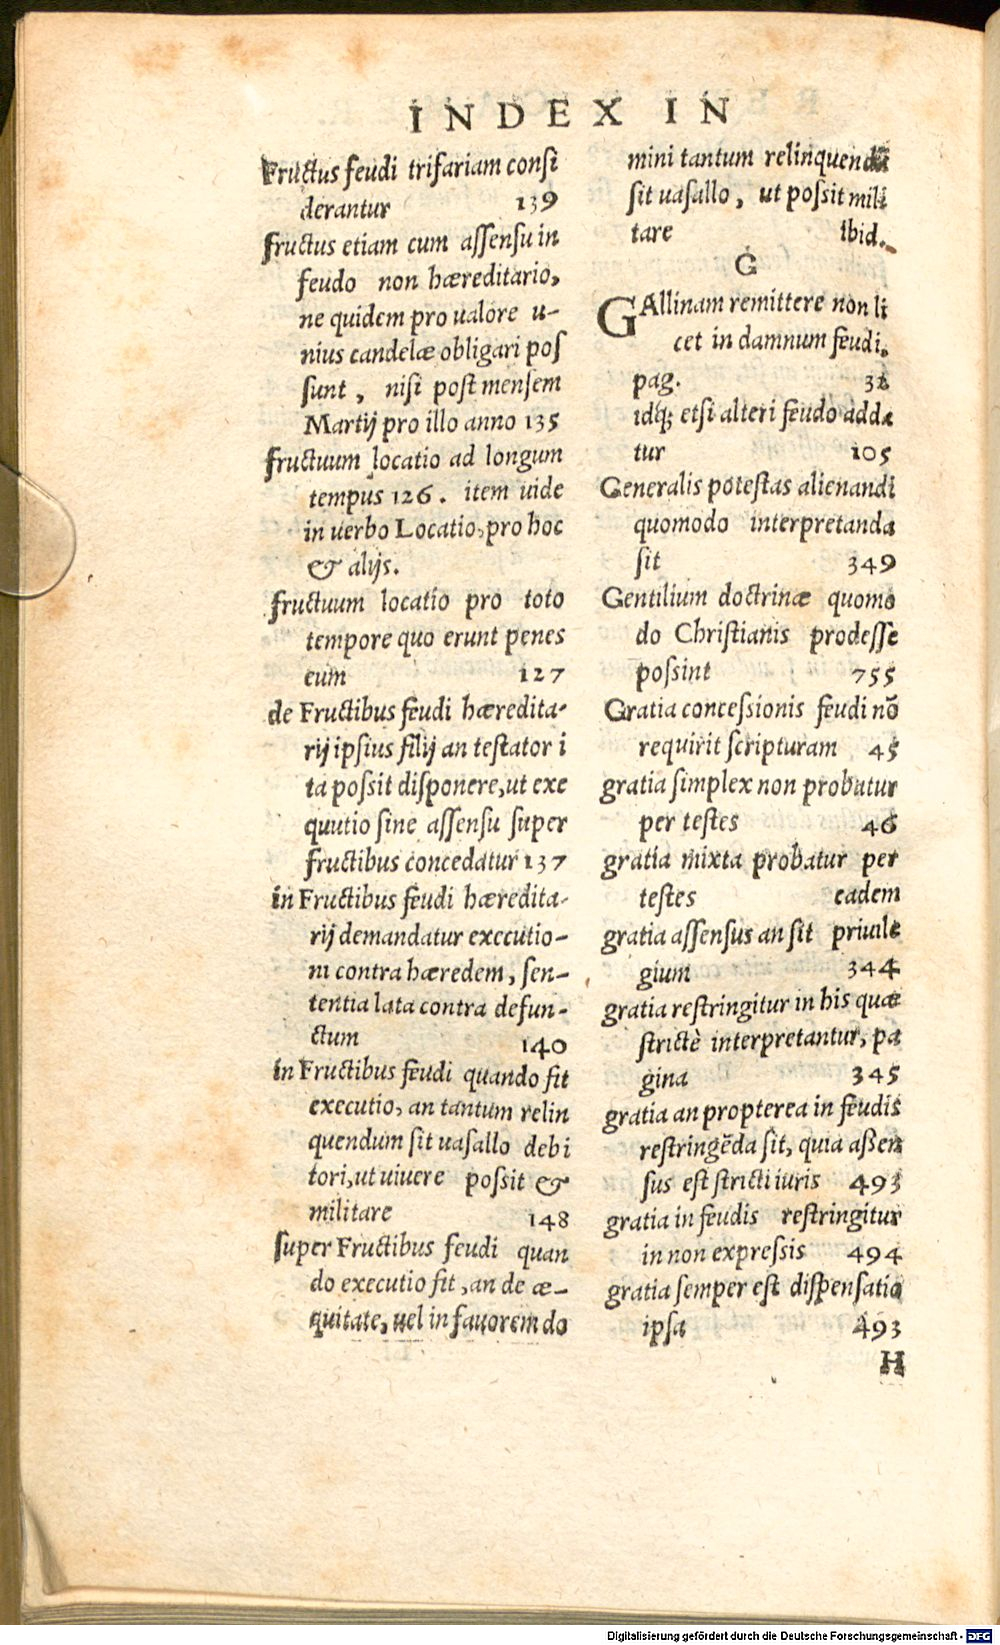 INDEX IN
Fructus feudi trifariam consi
derantur 139
fructus etiam cum assensu in
feudo non hæreditario,
ne quidem pro ualore u-
nius candelæ obligari pos
sunt, nisi post mensem
Martij pro illo anno 135
fructuum locatio ad longum
tempus 126. item uide
in uerbo Locatio, pro hoc
& alijs.
fructuum locatio pro toto
tempore quo erunt penes
eum 127
de Fructibus feudi hæredita-
rij ipsius filij an testator i
ta possit disponere, ut exe
quutio sine assensu super
fructibus concedatur 137
in Fructibus feudi hæredita-
rij demandatur executio-
ni contra hæredem, sen-
tentia lata contra defun-
ctum 140
in Fructibus feudi quando fit
executio, an tantum relin
quendum sit uasallo debi
tori, ut uiuere possit &
militare 148
super Fructibus feudi quan
do executio fit, an de æ-
quitate, uel in fauorem do
mini tantum relinquendū
sit uasallo, ut possit mili
tare ibid.
G
GAllinam remittere non li
cet in damnum feudi,
pag. 32
idq; etsi alteri feudo adda
tur 105
Generalis potestas alienandi
quomodo interpretanda
sit 349
Gentilium doctrinæ quomo
do Christianis prodesse
possint 755
Gratia concessionis feudi nō
requirit scripturam 45
gratia simplex non probatur
per testes 46
gratia mixta probatur per
testes eadem
gratia assensus an sit priuile
gium 344
gratia restringitur in his quæ
strictè interpretantur, pa
gina 345
gratia an propterea in feudis
restringēda sit, quia aßen
sus est stricti iuris 493
gratia in feudis restringitur
in non expressis 494
gratia semper est dispensatio
ipsa 493
H
Digitalisierung gefördert durch die Deutsche Forschungsgemeinschaft - DFG